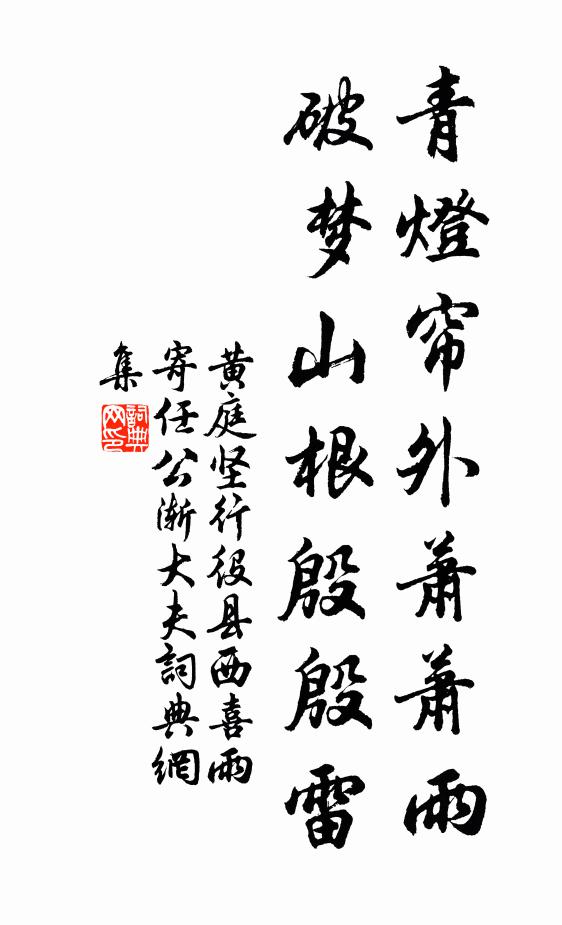 青燈帘外蕭蕭雨
破梦山根殷殷雷
黄庭坚行役县西喜雨
寄任公渐大夫詞典網
集
詞典网印